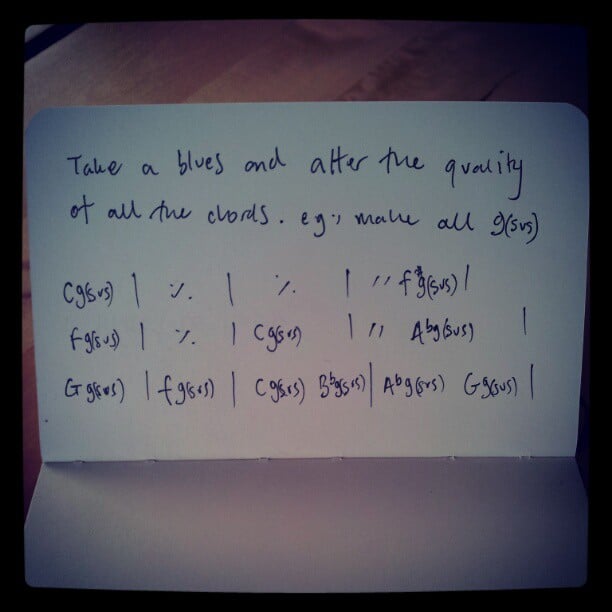 Take a blues and alter the quality
of all the chords. eg., make all 9(sus)
C9(sus) | ٪ | ٪ | " F#9(sus) |
F9(sus) | ٪ | C9(sus) | " Ab9(sus) |
G9(sus) | F9(sus) | C9(sus) Bb9(sus) | Ab9(sus) G9(sus) |